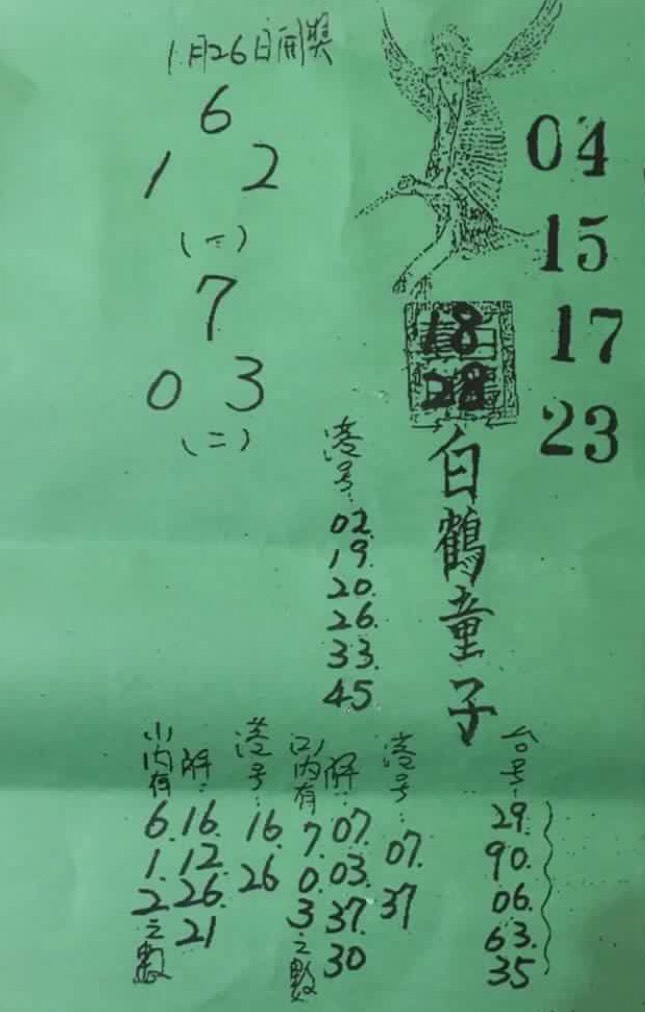 1月26日開獎
6
1 2
(一)
7
0 3
(二)
04
15
17
23
18
28
白鶴童子
港号:
02.
19.
20.
26.
33.
45
台号:
29.
90.
06.
63.
35
港号:
07.
37
解:
07.
03.
37.
30
(二)内有
7.
0.
3
之數
港号:
16.
26
解:
16.
12.
26.
21
(一)内有
6.
1.
2
之數